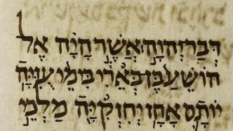 דְּבַר יְהוָה אֲשֶׁר הָיָה אֶל
הוֹשֵׁעַ בֶּן בְּאֵרִי בִּימֵי עֻזִּיָּה
יוֹתָם אָחָז יְחִזְקִיָּה מַלְכֵי